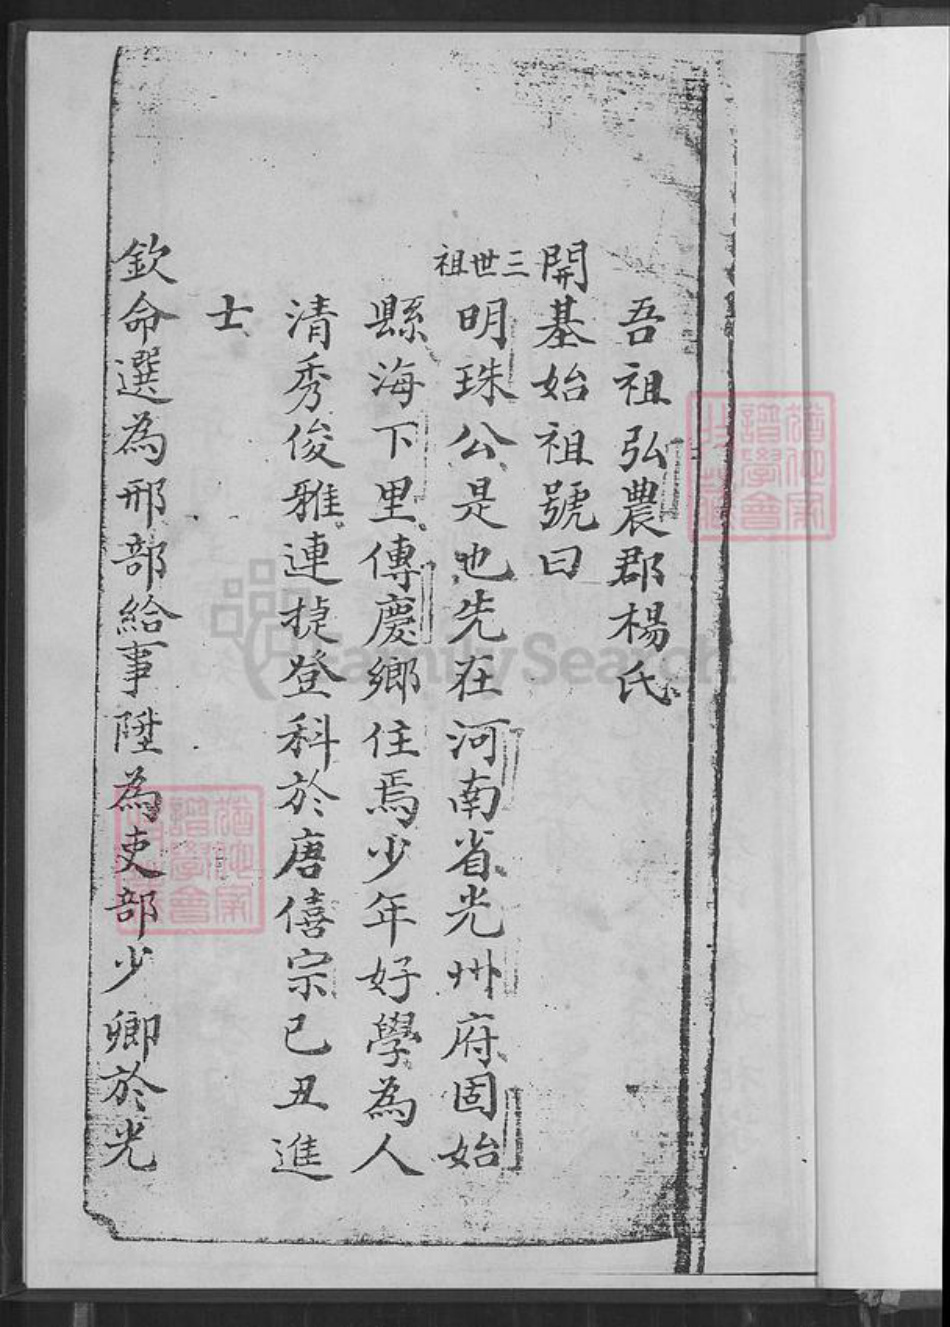 吾祖弘農郡楊氏
開基始祖號曰
三世祖
明珠公是也先在河南省光州府固始
縣海下里傳慶鄉住焉少年好學為人
清秀俊雅連捷登科於唐僖宗己丑進
士
欽命選為邢部給事陞為吏部少卿於光
FamilySearch